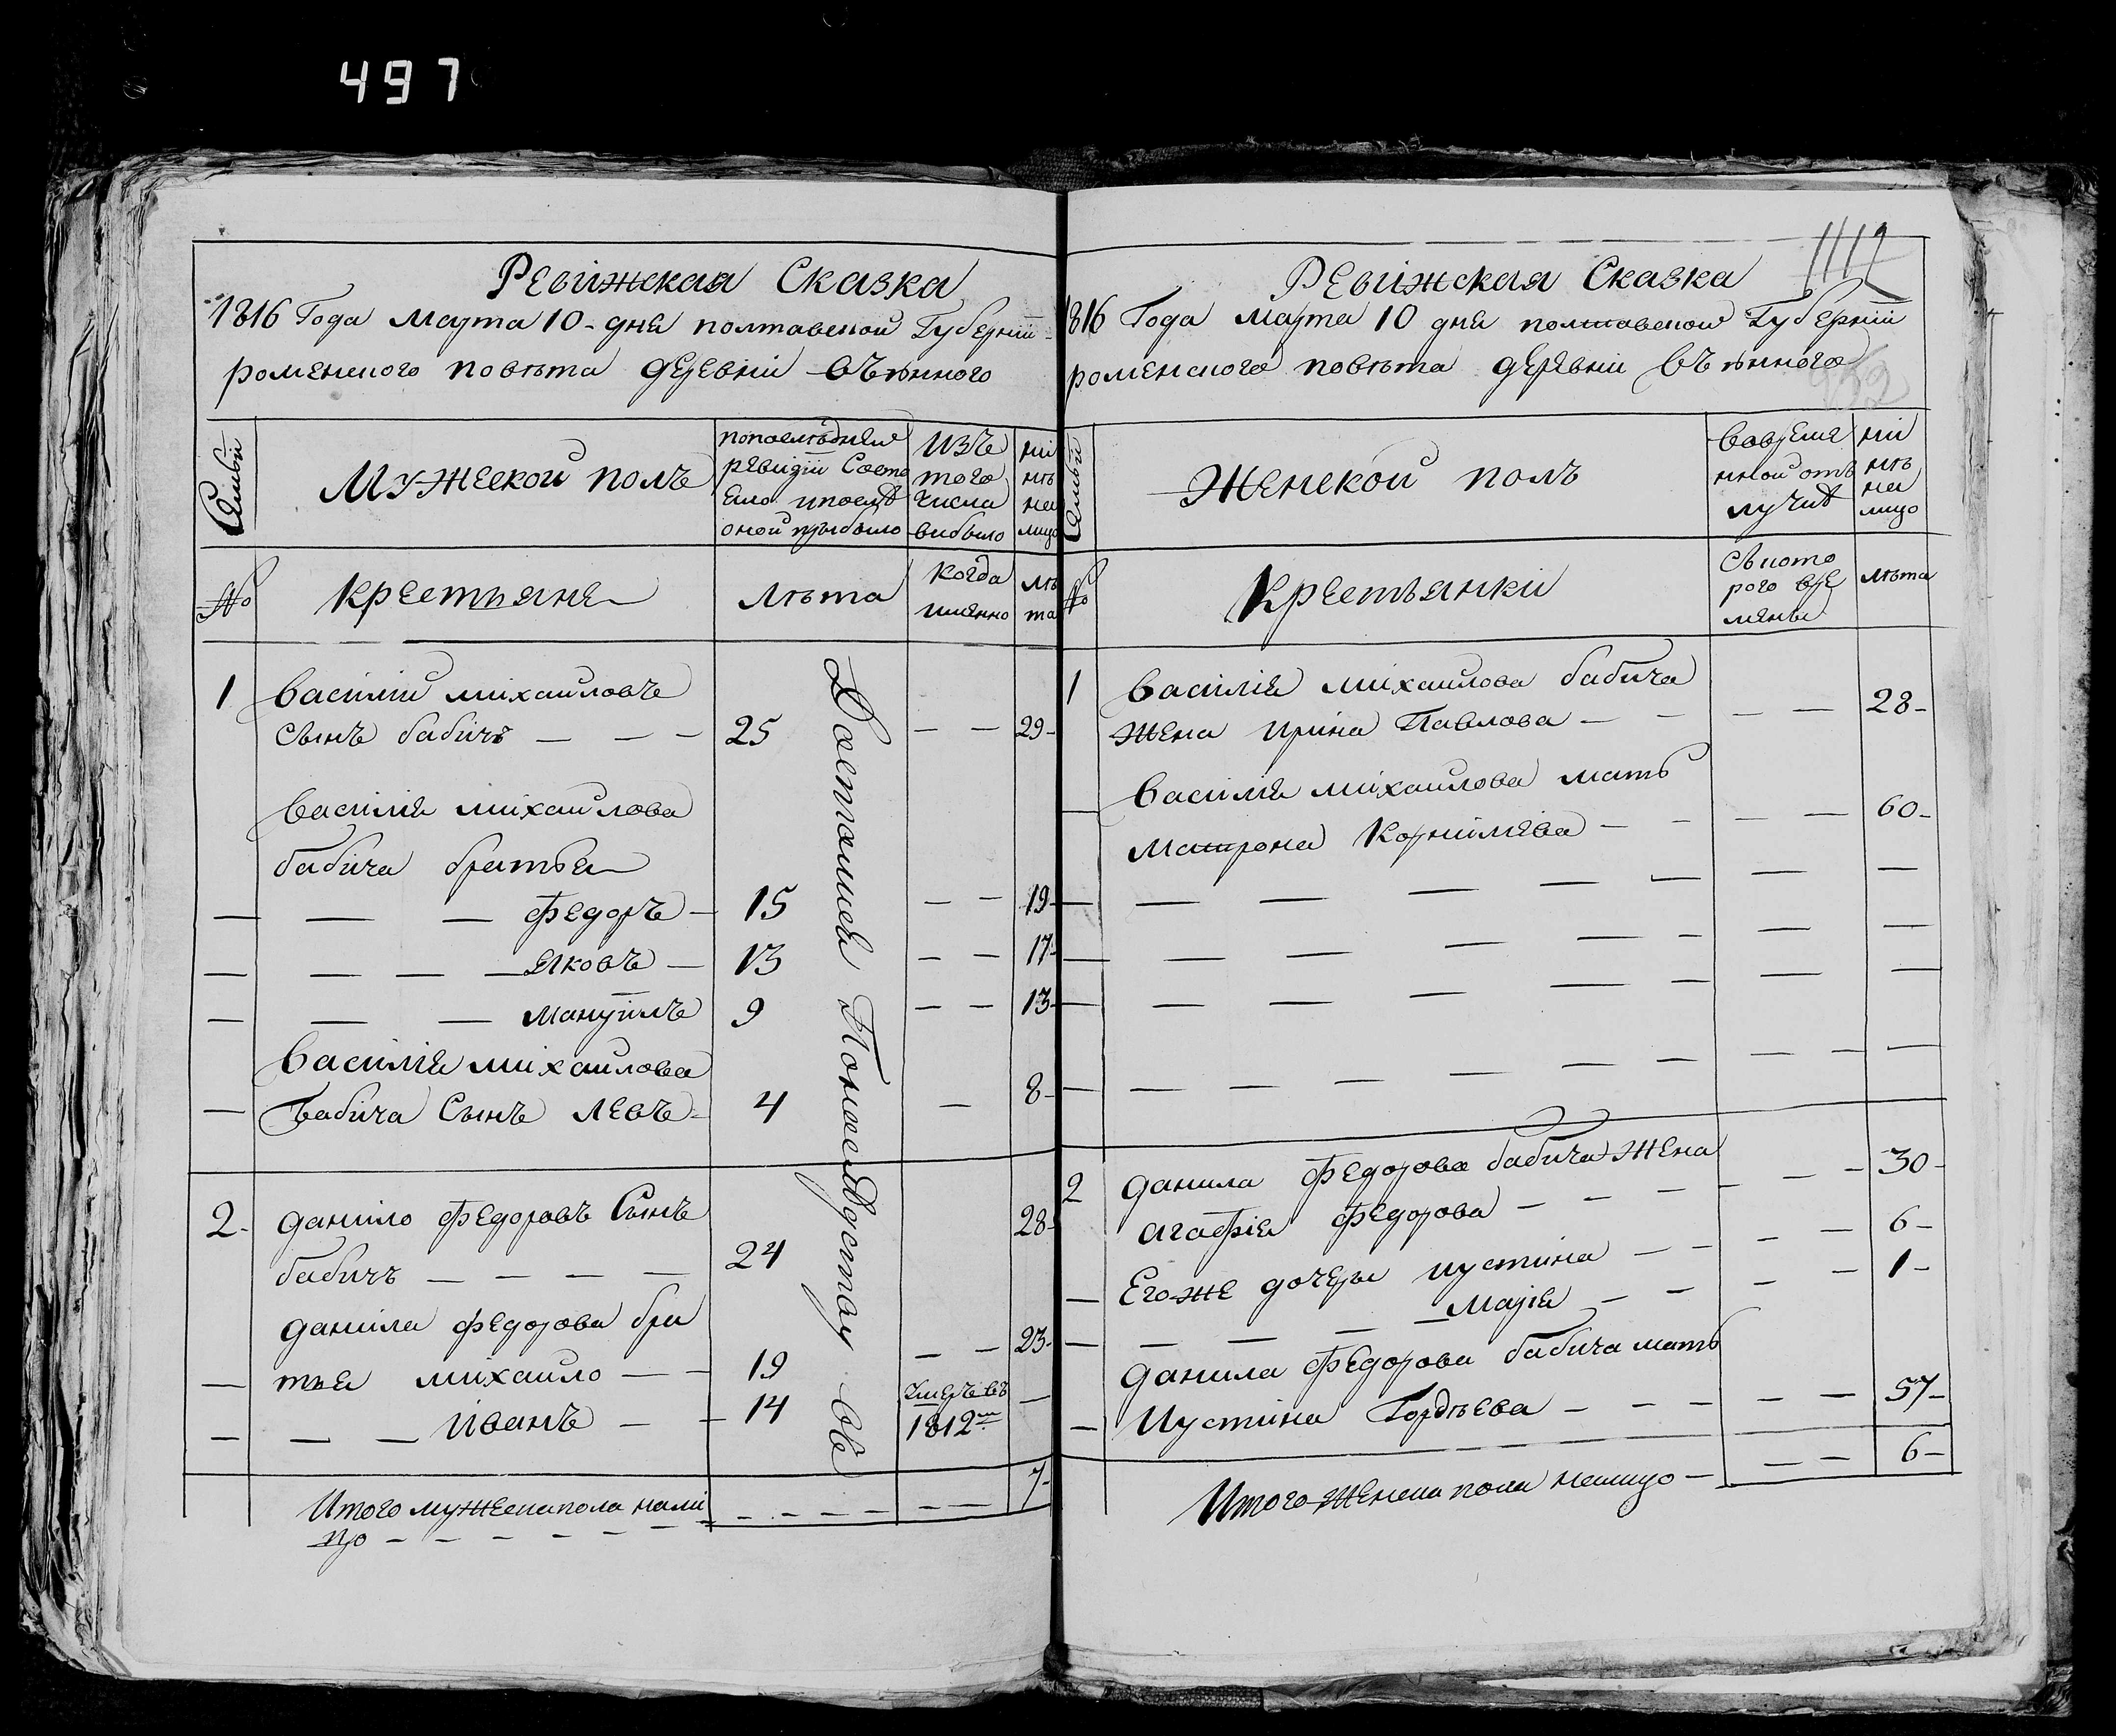 497
Ревижская Сказка
1816 Года марта 10-дня полтавской Губерніи
роменского повѣта деревни въюнного
Семьи
Мужеской полъ
попоследней
ревизіи Состо
яло ипослѣ
оной прыбыло
изъ
того
числа
выбыло
ни
нѣ
на
лицо
№
крестьяне
лѣта
когда
именно
лѣ
та
1
василий михайловъ
сынъ бабичъ — — —
25
— —
29-
василия михайлова
бабича братья
— — — федоръ —
15
— —
19-
— — — — яковъ —
13
— —
17-
— — — мануилъ
9
— —
13-
василия михайлова
— бабича Сынъ левъ-
4
—
8-
2-
данило федоровъ Сынъ
28-
бабичъ — — — —
24
данила федорова бра
— тья михайло — —
19
— —
23-
— — — иванъ — —
14
умеръ въ
1812м
—
Итого мужеска пола нали
цо — — — — — — —
7-
1112
Ревижская Сказка
1816 Года марта 10 дня полтавской Губерніи
роменского повѣта деревни въюнного
952
Семьи
Женской полъ
вовреме
нной отъ
лучкѣ
ни
нѣ
на
лицо
№
Крестьянки
Съкото
рого вре
мены
лѣта
1
василия михайлова бабича
жена ирина Павлова — — — —
28-
василия михайлова мать
— матрона Корнилева — — — —
60-
2
данила федорова бабича жена
агафия федорова — — — — — —
30-
— Егоже дочеры иустина — — — —
6-
— — — — — мария — — — —
1-
данила федорова бабича мать
— иустина Гордѣева — — — — —
57-
Итого женска пола налицо — — —
6-